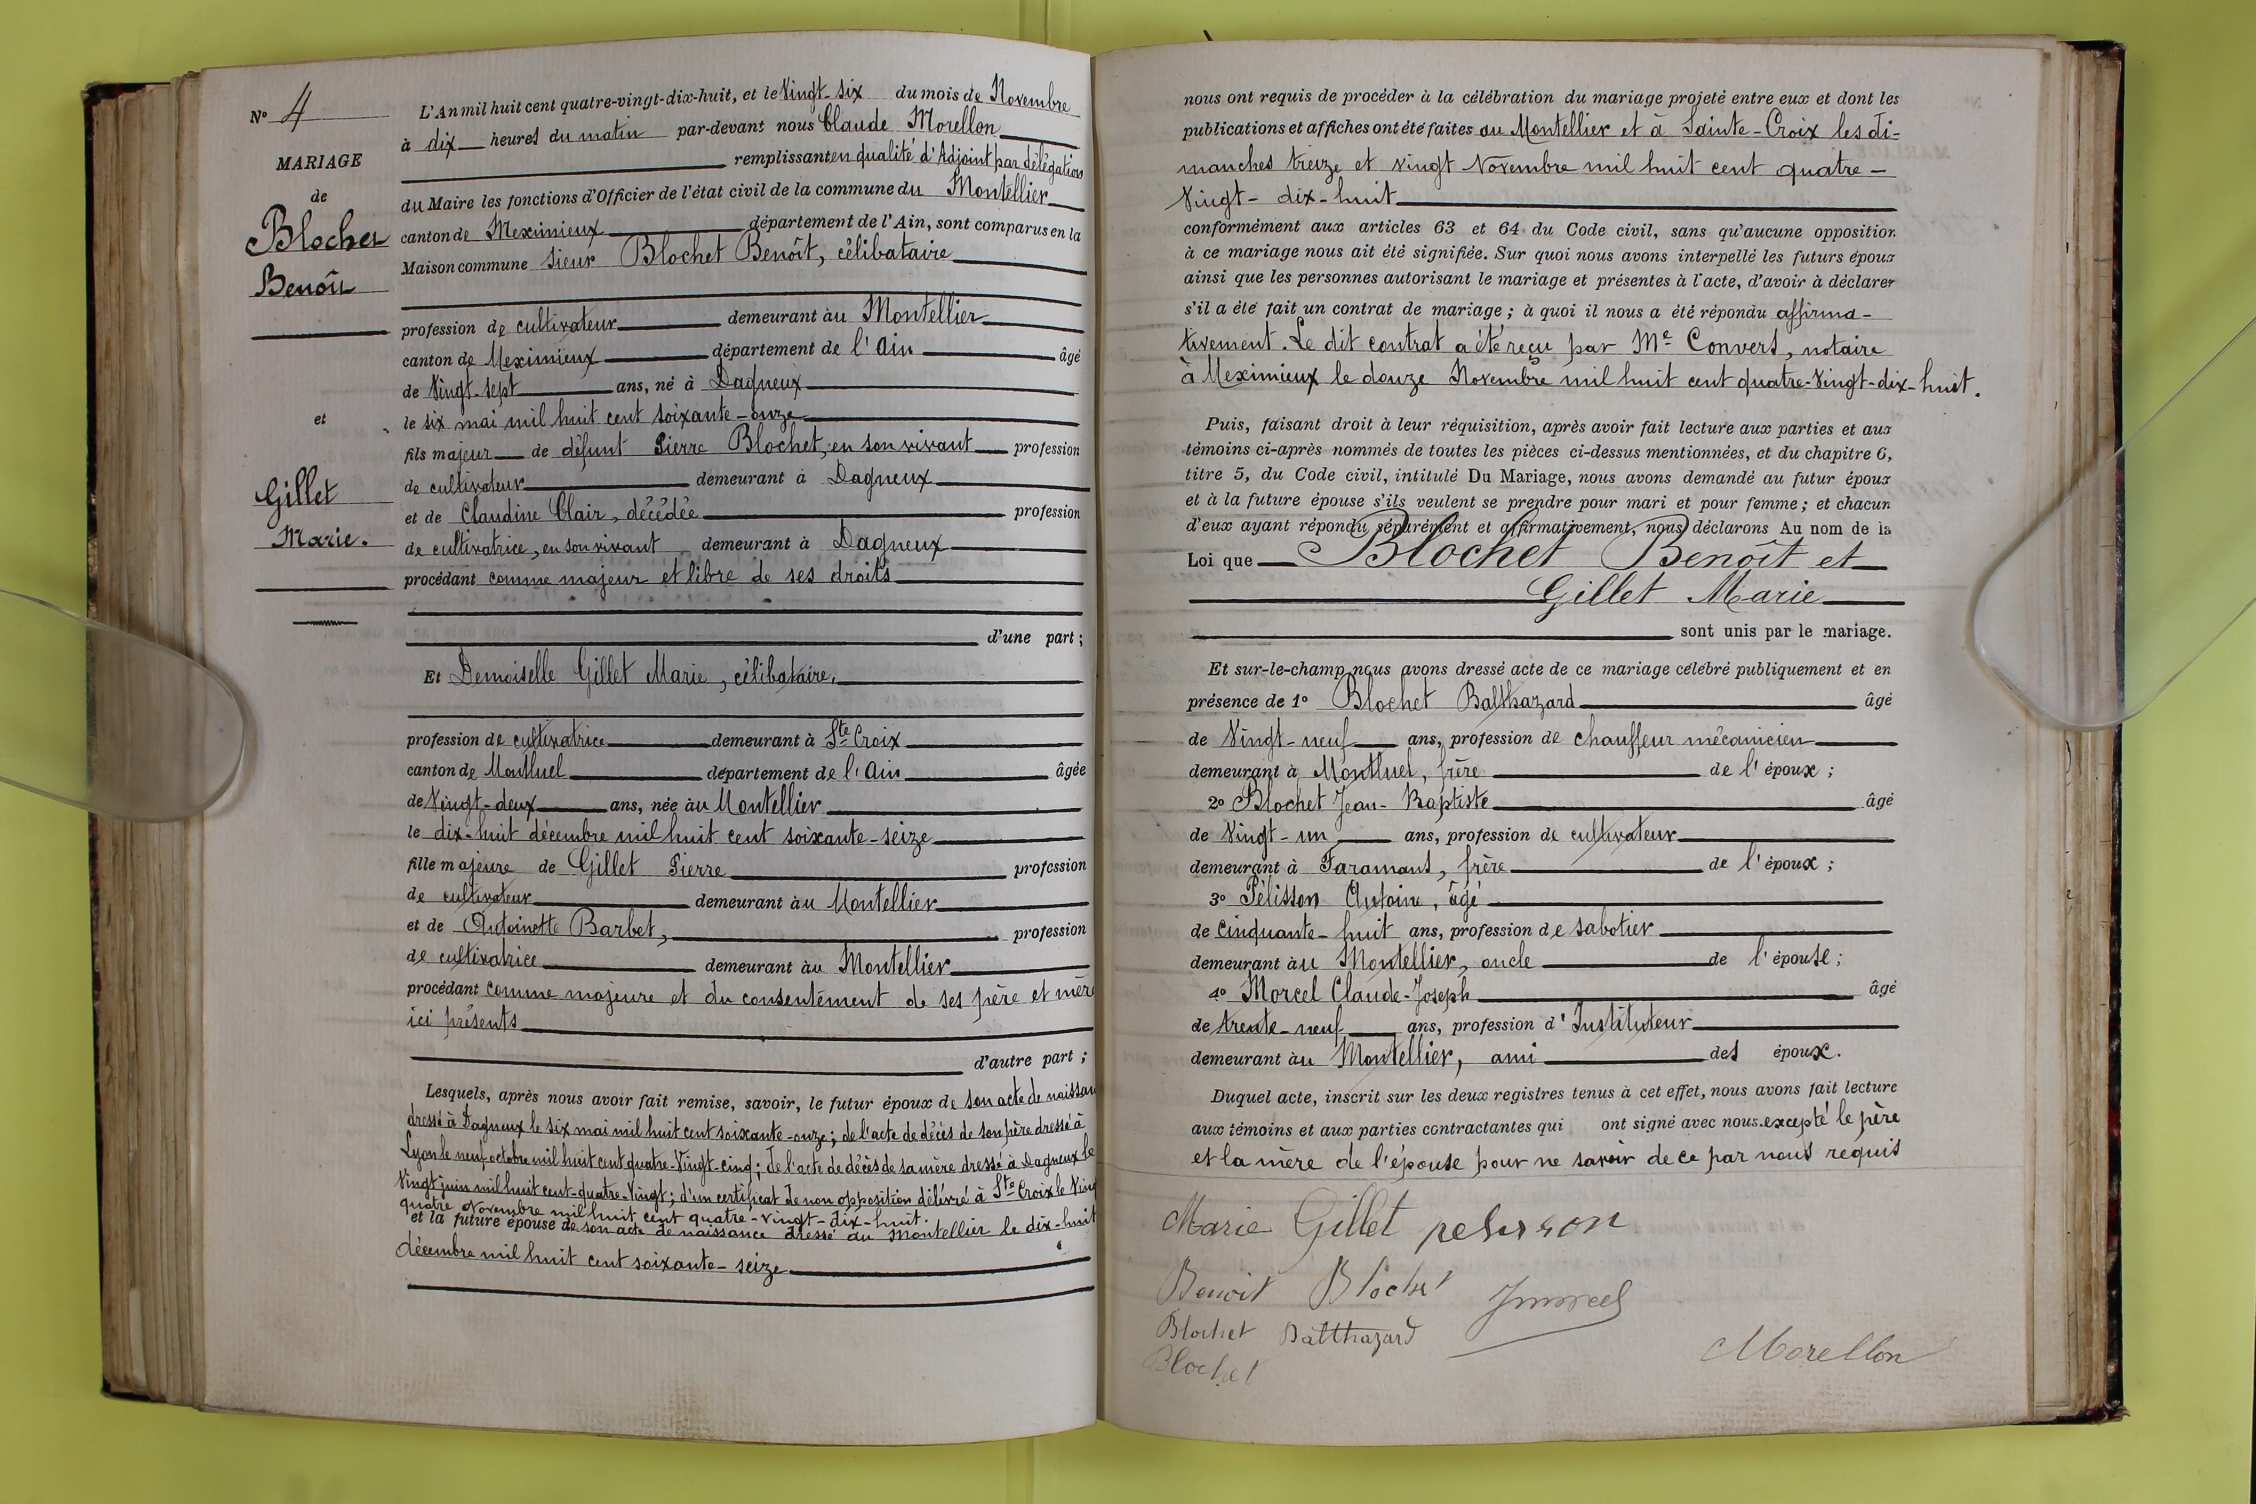 N° 4
MARIAGE
de
Blochet
Benoît
et
Gillet
Marie.
L'An mil huit cent quatre-vingt-dix-huit, et le Vingt-six du mois de Novembre
à dix heures du matin par-devant nous Claude Morellon
remplissant en qualité d'Adjoint par délégation
du Maire les fonctions d'Officier de l'état civil de la commune du Montellier
canton de Meximieux département de l'Ain, sont comparus en la
Maison commune Sieur Blochet Benoît, célibataire
profession de cultivateur demeurant au Montellier
canton de Meximieux département de l'Ain âgé
de Vingt-sept ans, né à Dagneux
le six mai mil huit cent soixante-onze
fils majeur de défunt Pierre Blochet, en son vivant profession
de cultivateur demeurant à Dagneux
et de Claudine Clair, décédée profession
de cultivatrice, en son vivant demeurant à Dagneux
procédant comme majeur et libre de ses droits
d'une part;
Et Demoiselle Gillet Marie, célibataire,
profession de cultivatrice demeurant à Ste Croix
canton de Montluel département de l'Ain âgée
de Vingt-deux ans, née au Montellier
le dix-huit décembre mil huit cent soixante-seize
fille majeure de Gillet Pierre profession
de cultivateur demeurant au Montellier
et de Antoinette Barbet, profession
de cultivatrice demeurant au Montellier
procédant comme majeure et du consentement de ses père et mère
ici présents
d'autre part;
Lesquels, après nous avoir fait remise, savoir, le futur époux de son acte de naissan
dressé à Dagneux le six mai mil huit cent soixante-onze; de l'acte de décès de son père dressé à
Lyon le neuf octobre mil huit cent quatre-Vingt-cinq; de l'acte de décès de sa mère dressé à Dagneux le
Vingt juin mil huit cent-quatre-Vingt; d'un certificat de non opposition délivré à Ste Croix le Ving
quatre Novembre mil huit cent quatre-vingt-dix-huit.
et la future épouse de son acte de naissance dressé au Montellier le dix-huit
décembre mil huit cent soixante-seize
nous ont requis de procéder à la célébration du mariage projeté entre eux et dont les
publications et affiches ont été faites au Montellier et à Sainte-Croix les di-
manches treize et vingt Novembre mil huit cent quatre-
Vingt-dix-huit
conformément aux articles 63 et 64 du Code civil, sans qu'aucune opposition
à ce mariage nous ait été signifiée. Sur quoi nous avons interpellé les futurs époux
ainsi que les personnes autorisant le mariage et présentes à l'acte, d'avoir à déclarer
s'il a été fait un contrat de mariage; à quoi il nous a été répondu affirma-
tivement. Le dit contrat a été reçu par Me Convert, notaire
à Meximieux le douze Novembre mil huit cent quatre-Vingt-dix-huit.
Puis, faisant droit à leur réquisition, après avoir fait lecture aux parties et aux
témoins ci-après nommés de toutes les pièces ci-dessus mentionnées, et du chapitre 6,
titre 5, du Code civil, intitulé Du Mariage, nous avons demandé au futur époux
et à la future épouse s'ils veulent se prendre pour mari et pour femme; et chacun
d'eux ayant répondu séparément et affirmativement, nous déclarons Au nom de la
Loi que Blochet Benoît et
Gillet Marie
sont unis par le mariage.
Et sur-le-champ nous avons dressé acte de ce mariage célébré publiquement et en
présence de 1° Blochet Balthazard âgé
de Vingt-neuf ans, profession de chauffeur mécanicien
demeurant à Montluel, frère de l'époux;
2° Blochet Jean-Baptiste âgé
de Vingt-un ans, profession de cultivateur
demeurant à Faramans, frère de l'époux;
3° Pélisson Antoine, âgé
de Cinquante-huit ans, profession de sabotier
demeurant au Montellier, oncle de l'épouse;
4° Morcel Claude-Joseph âgé
de trente-neuf ans, profession d'Instituteur
demeurant au Montellier, ami des époux.
Duquel acte, inscrit sur les deux registres tenus à cet effet, nous avons fait lecture
aux témoins et aux parties contractantes qui ont signé avec nous. excepté le père
et la mère de l'épouse pour ne savoir de ce par nous requis
Marie Gillet pelisson
Benoit Blochet Jmorcel
Blochet Balthazard
Blochet
Morellon